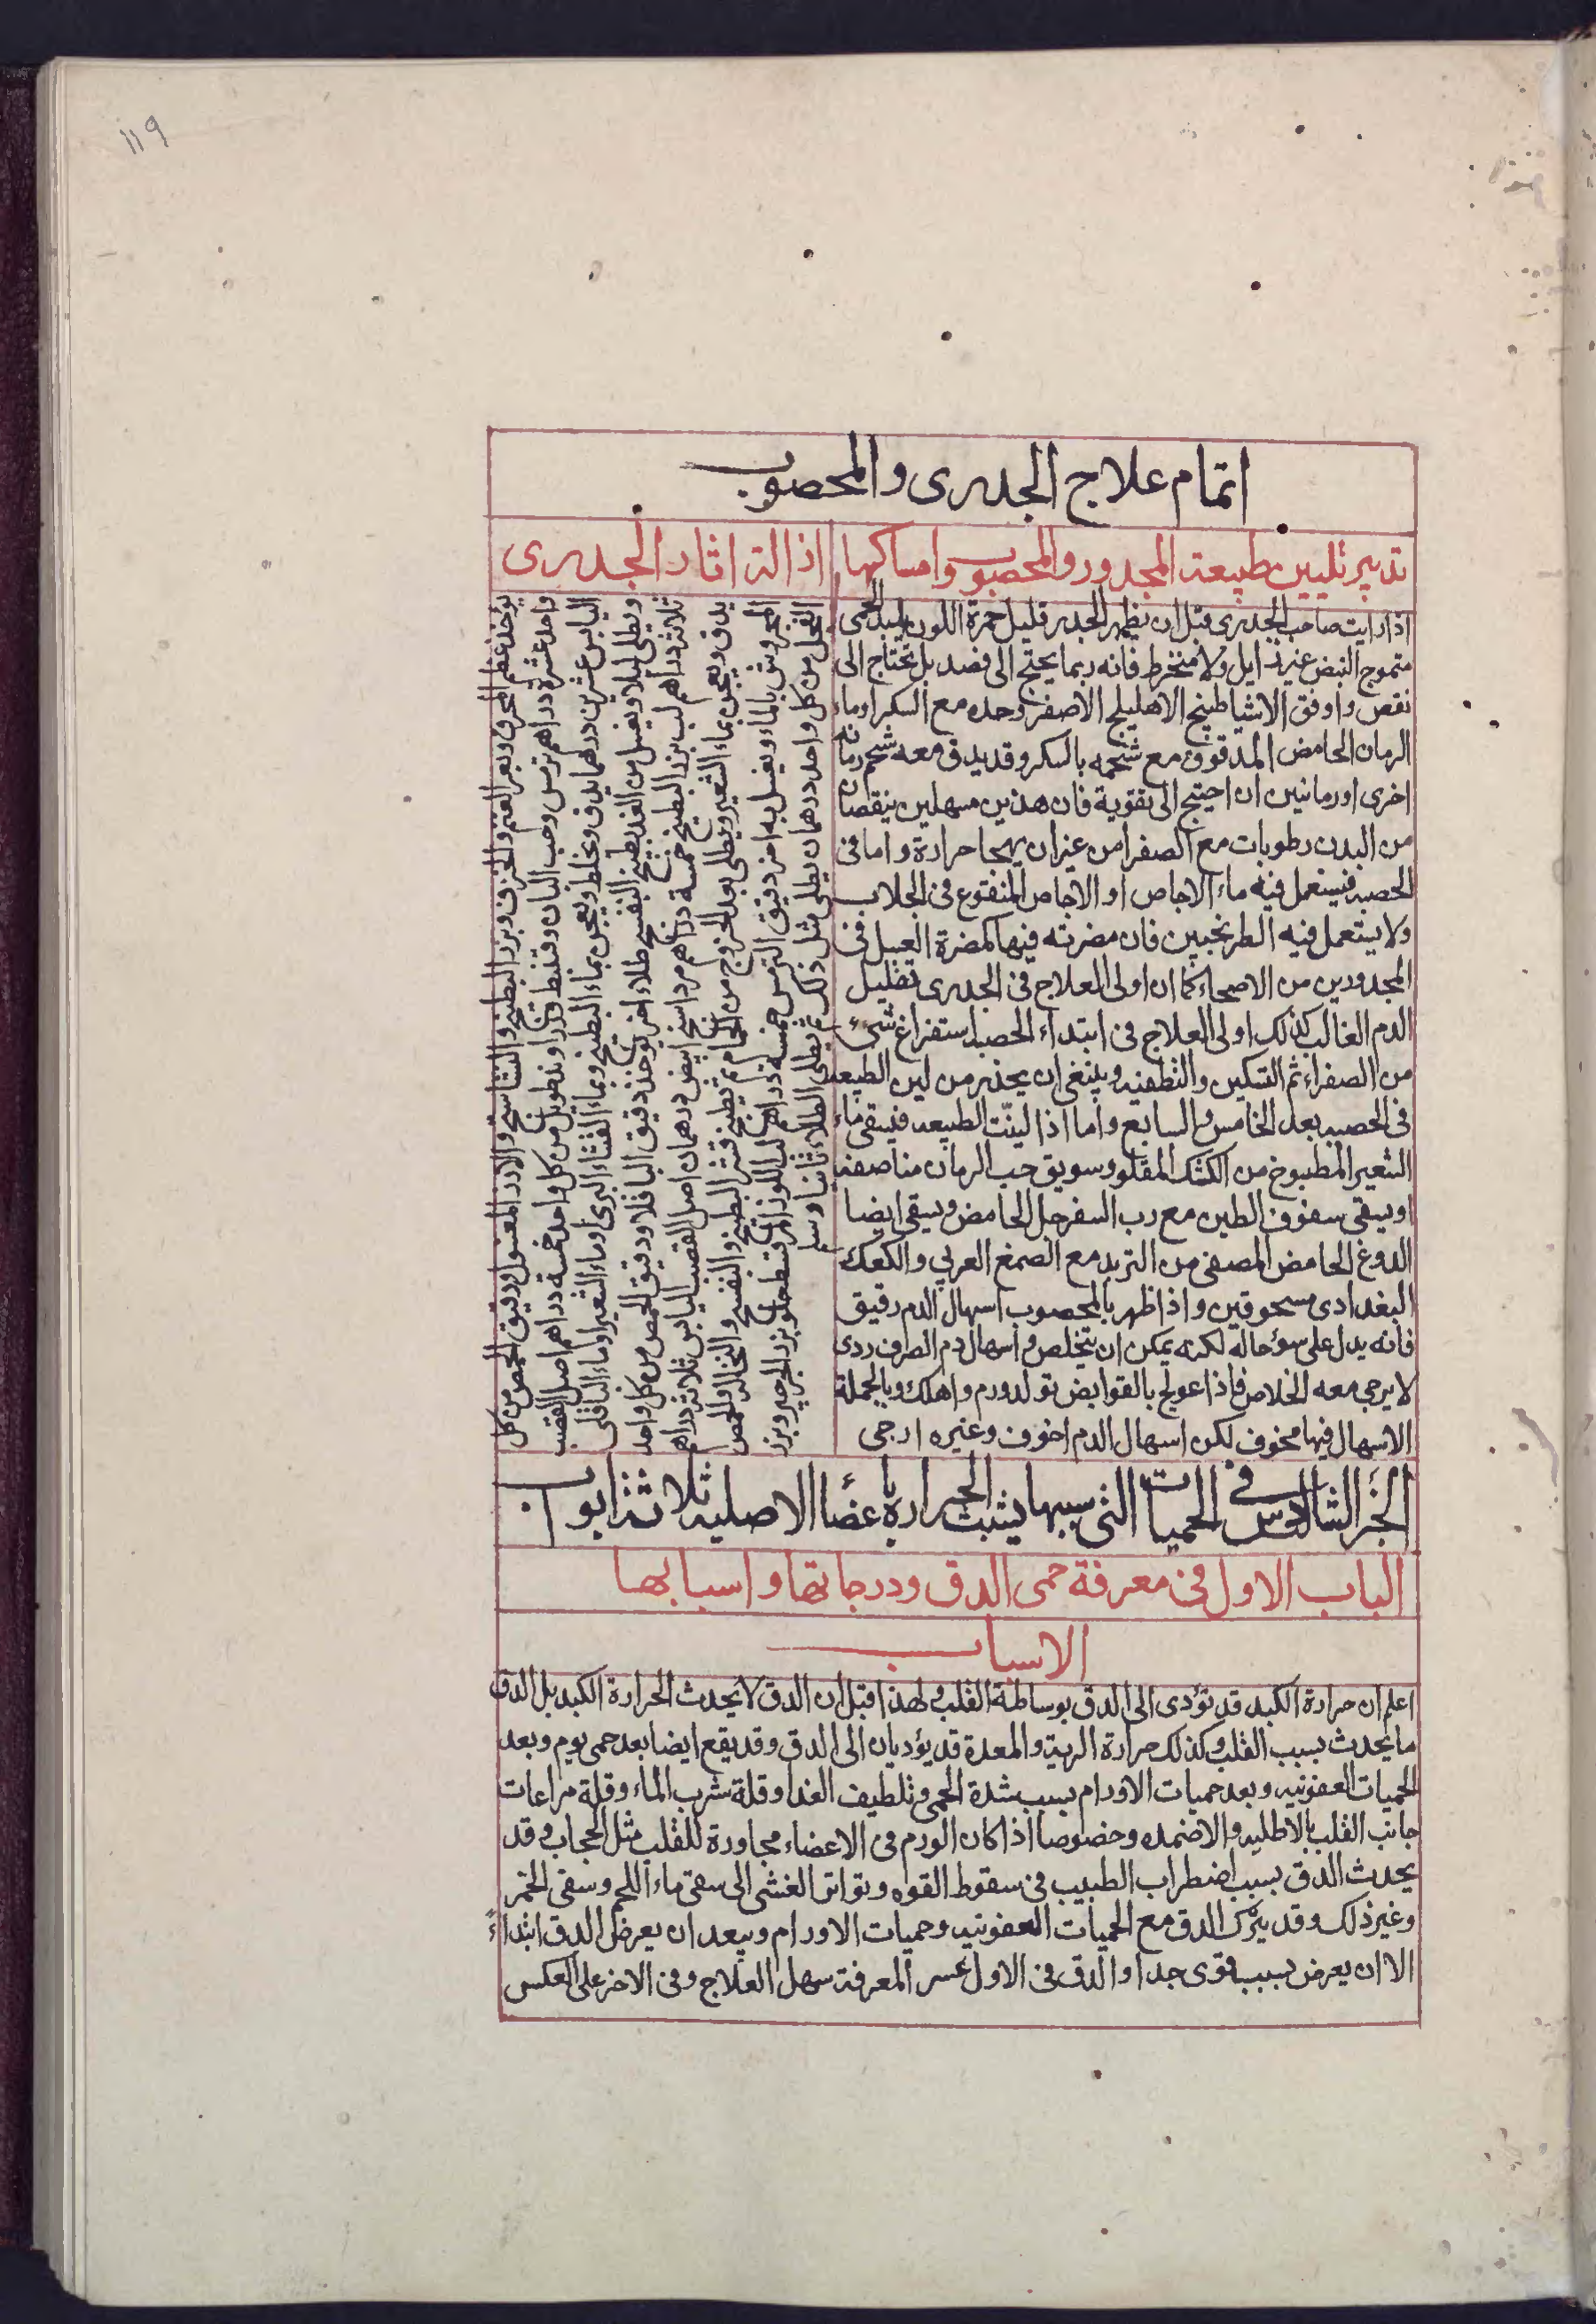 ١١٩
اتمام علاج الجدرى والمحصوب
تدبير تليين طبيعة المجدور والمحصوب وامساكها
اذا رايت صاحب الجدرى قبل ان يظهر الجدر قليل حمرة اللون الحمى
متموج النبض غير ذايل ولا منخرط فانه ربما يحتج الى فصد بل يحتاج الى
نقص واوفق الاشيا طبيخ الاهليلج الاصفر وحده مع السكر او ماء
الرمان الحامض المدقوق مع شحمه بالسكر وقد يدق معه شحم رمانه
اخرى او رمانتين ان احتيج الى تقوية فان هذين مسهلين ينقصان
من البدن رطوبات مع الصفرا من غير ان يهجا حرارة واما فى
الحصبه فيستعمل فيه ماء الاجاص او الاجاص المنقوع فى الجلاب
ولا يستعمل فيه الطرنجبين فان مضرته فيها كمضرة العسل فى
المجدورين من الاصحاء كما ان اولى العلاج فى الجدرى تقليل
الدم الغالب كذلك اولى العلاج فى ابتداء الحصبه استفراغ شىء
من الصفراء ثم التسكين والتطفيه وينبغى ان يحذر من لين الطبيعه
فى الحصبه بعد الخامس والسابع واما اذا لينت الطبيعه فيسقى ماء
الشعير المطبوخ من الكشك المقلو وسويق حب الرمان مناصفه
او يسقى سفوف الطين مع رب السفرجل الحامض ويسقى ايضا
الدوغ الحامض المصفى من التربد مع الصمغ العربي والكعك
البغدادى مسحوقين واذا ظهر بالمحصوب اسهال الدم رقيق
فانه يدل على سوء حاله لكنه يمكن ان يتخلص واسهال دم الصرف ردى
لا يرجى معه الخلاص فاذا عولج بالقوابض تولد ورم واهلك وبالجملة
الاسهال فيها مخوف لكن اسهال الدم اخوف وغيره ارجى
اذالة اثار الجدرى
يؤخذ عظم المحرق وبعر الغنم والخزف وبزر البطيخ والنشاسج والارز المغسول ودقيق الحمص من كل
واحد عشرة دراهم ترمس وحب البان وقسط وزراوند طويل من كل واحد خمسة دراهم اصل القصب
اليابس عشرين درهما يدق ويخلط ويعجن بماء البطيخ وبماء القثاء البرى او ماء الشعير او ماء الباقلى
ويطلى ليلا ويغسل من الغد بطبيخ البنفسج طلاء اخر يؤخذ دقيق الباقلا ودقيق الحمص من كل واحد
ثلاثة دراهم لب بزر البطيخ خمسة دراهم مرداسنج ابيض درهمان اصل القصب اليابس ثلاثة دراهم
يدق ويعجن بماء الشعير ويطلى بعد الخروج من الحمام ثم يطبخ قشر البطيخ والبنفسج والنخالة والحمص
المجروش بالماء ويغسل به اخر دقيق الترمس خمسة دراهم لب اللوز المر قسط حلو بزر الجرجير وبزر
الفجل من كل واحد درهمان يطلى مثل ذلك ثم يطلى الطلاء ثانيا
الجز الثالث فى الحميات التى سببها يشبث الحرارة باعضا الاصليه ثلاثة ابواب
الباب الاول فى معرفة حمى الدق ودرجاتها واسبابها
الاسباب
اعلم ان حرارة الكبد قد تؤدى الى الدق بوساطة القلب ولهذا قيل ان الدق لا يحدث الحرارة الكبد بل الدق
ما يحدث بسبب القلب وكذلك حرارة الرية والمعدة قد يؤديان الى الدق وقد يقع ايضا بعد حمى يوم وبعد
الحميات العفونيه وبعد حميات الاورام بسبب شدة الحمى وتلطيف الغدا وقلة شرب الماء وقلة مراعات
جانب القلب بالاطليه والاضمده وخصوصا اذا كان الورم فى الاعضاء مجاورة للقلب مثل الحجاب وقد
يحدث الدق بسبب اضطراب الطبيب فى سقوط القوه وتواتر الغشى الى سقى ماء اللحم وسقى الخمر
وغير ذلك وقد يتركب الدق مع الحميات العفونيه وحميات الاورام ويبعد ان يعرض الدق ابتداءً
الا ان يعرض بسبب قوى جدا والدق فى الاول عسر المعرفة سهل العلاج وفى الاخر على العكس